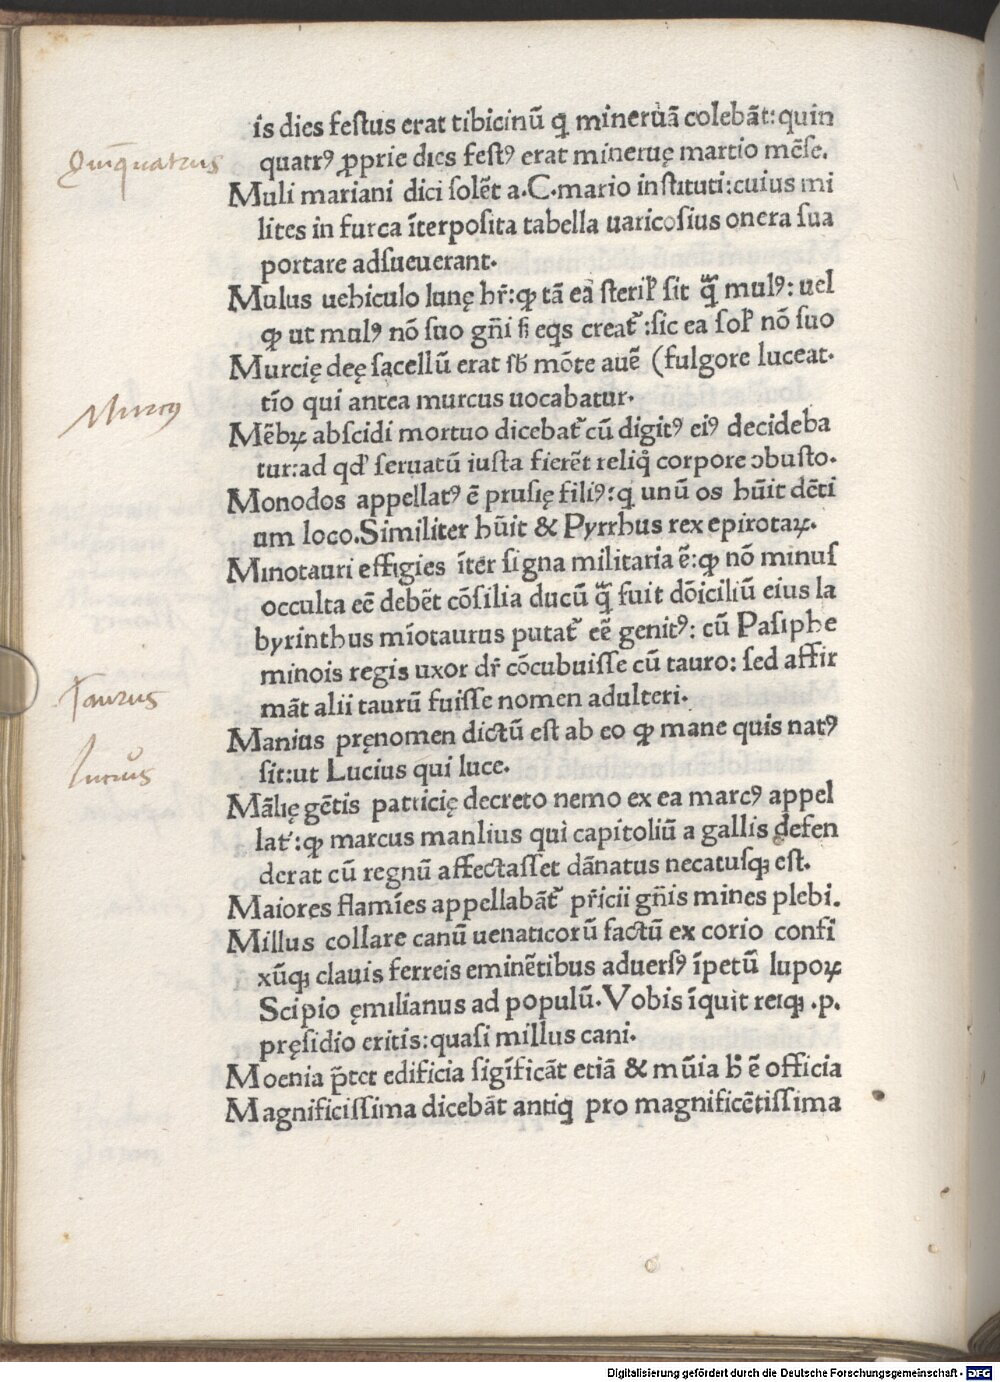 is dies festus erat tibicinū ꝗ mineruā colebāt: quin
Quinq̄uatrus
quatrꝯ ꝓprie dies festꝯ erat mineruę martio mēse.
Muli mariani dici solēt a.C.mario instituti:cuius mi
lites in furca īterposita tabella uaricosius onera sua
portare adsueuerant.
Mulus uehiculo lunę hr̄:ꝙ tā ea steril̛ sit q̄̃ mulꝯ: uel
ꝙ ut mulꝯ nō suo gn̄i ß eqs creat᷑:sic ea sol̛ nō suo
Murcię deę sacellū erat sƀ mōte auē (fulgore luceat.
Murcꝯ
tīo qui antea murcus uocabatur.
Mēbꝝ abscidi mortuo dicebat᷑ cū digitꝯ eiꝯ decideba
tur:ad qd̛ seruatū iusta fierēt reliq̄ corpore ↄbusto.
Monodos appellatꝯ ē prusię filiꝯ:ꝗ unū os hūit dēti
um loco.Similiter hūit & Pyrrhus rex epirotaꝝ.
Minotauri effigies īter signa militaria ē:ꝙ nō minus
occulta eē debēt cōsilia ducū q̄̃ fuit dōiciliū eius la
byrinthus mīotaurus putat᷑ eē genitꝯ: cū Pasiphe
minois regis uxor dr̄ cōcubuisse cū tauro: sed affir
Taurus
māt alii taurū fuisse nomen adulteri.
Manius pręnomen dictū est ab eo ꝙ mane quis natꝯ
Lucius
sit:ut Lucius qui luce.
Mālię gētis patricię decreto nemo ex ea marcꝯ appel
lat᷑:ꝙ marcus manlius qui capitoliū a gallis defen
derat cū regnū affectasset dānatus necatusq; est.
Maiores flamīes appellabāt᷑ pr̄icii gn̄is mines plebi.
Millus collare canū uenaticorū factū ex corio confi
xūq; clauis ferreis eminētibus aduersꝯ īpetū lupoꝝ
Scipio ęmilianus ad populū.Vobis īquit reiq; .p.
pręsidio eritis:quasi millus cani.
Moenia p̄ter edificia sigīficāt etiā & mūia h̛ ē officia
Magnificissima dicebāt antiꝗ pro magnificētissima
Digitalisierung gefördert durch die Deutsche Forschungsgemeinschaft - DFG